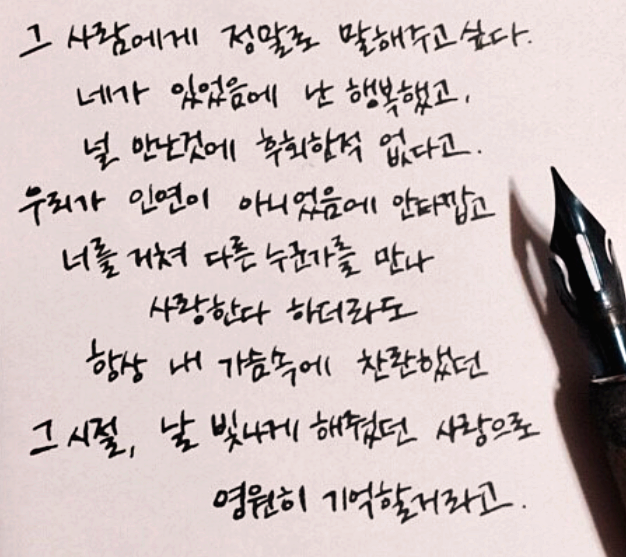 그 사람에게 정말로 말해주고싶다.
네가 있었음에 난 행복했고,
널 만난것에 후회한적 없다고.
우리가 인연이 아니었음에 안타깝고
너를 거쳐 다른 누군가를 만나
사랑한다 하더라도
항상 내 가슴속에 찬란했던
그 시절, 날 빛나게 해줬던 사람으로
영원히 기억할거라고.